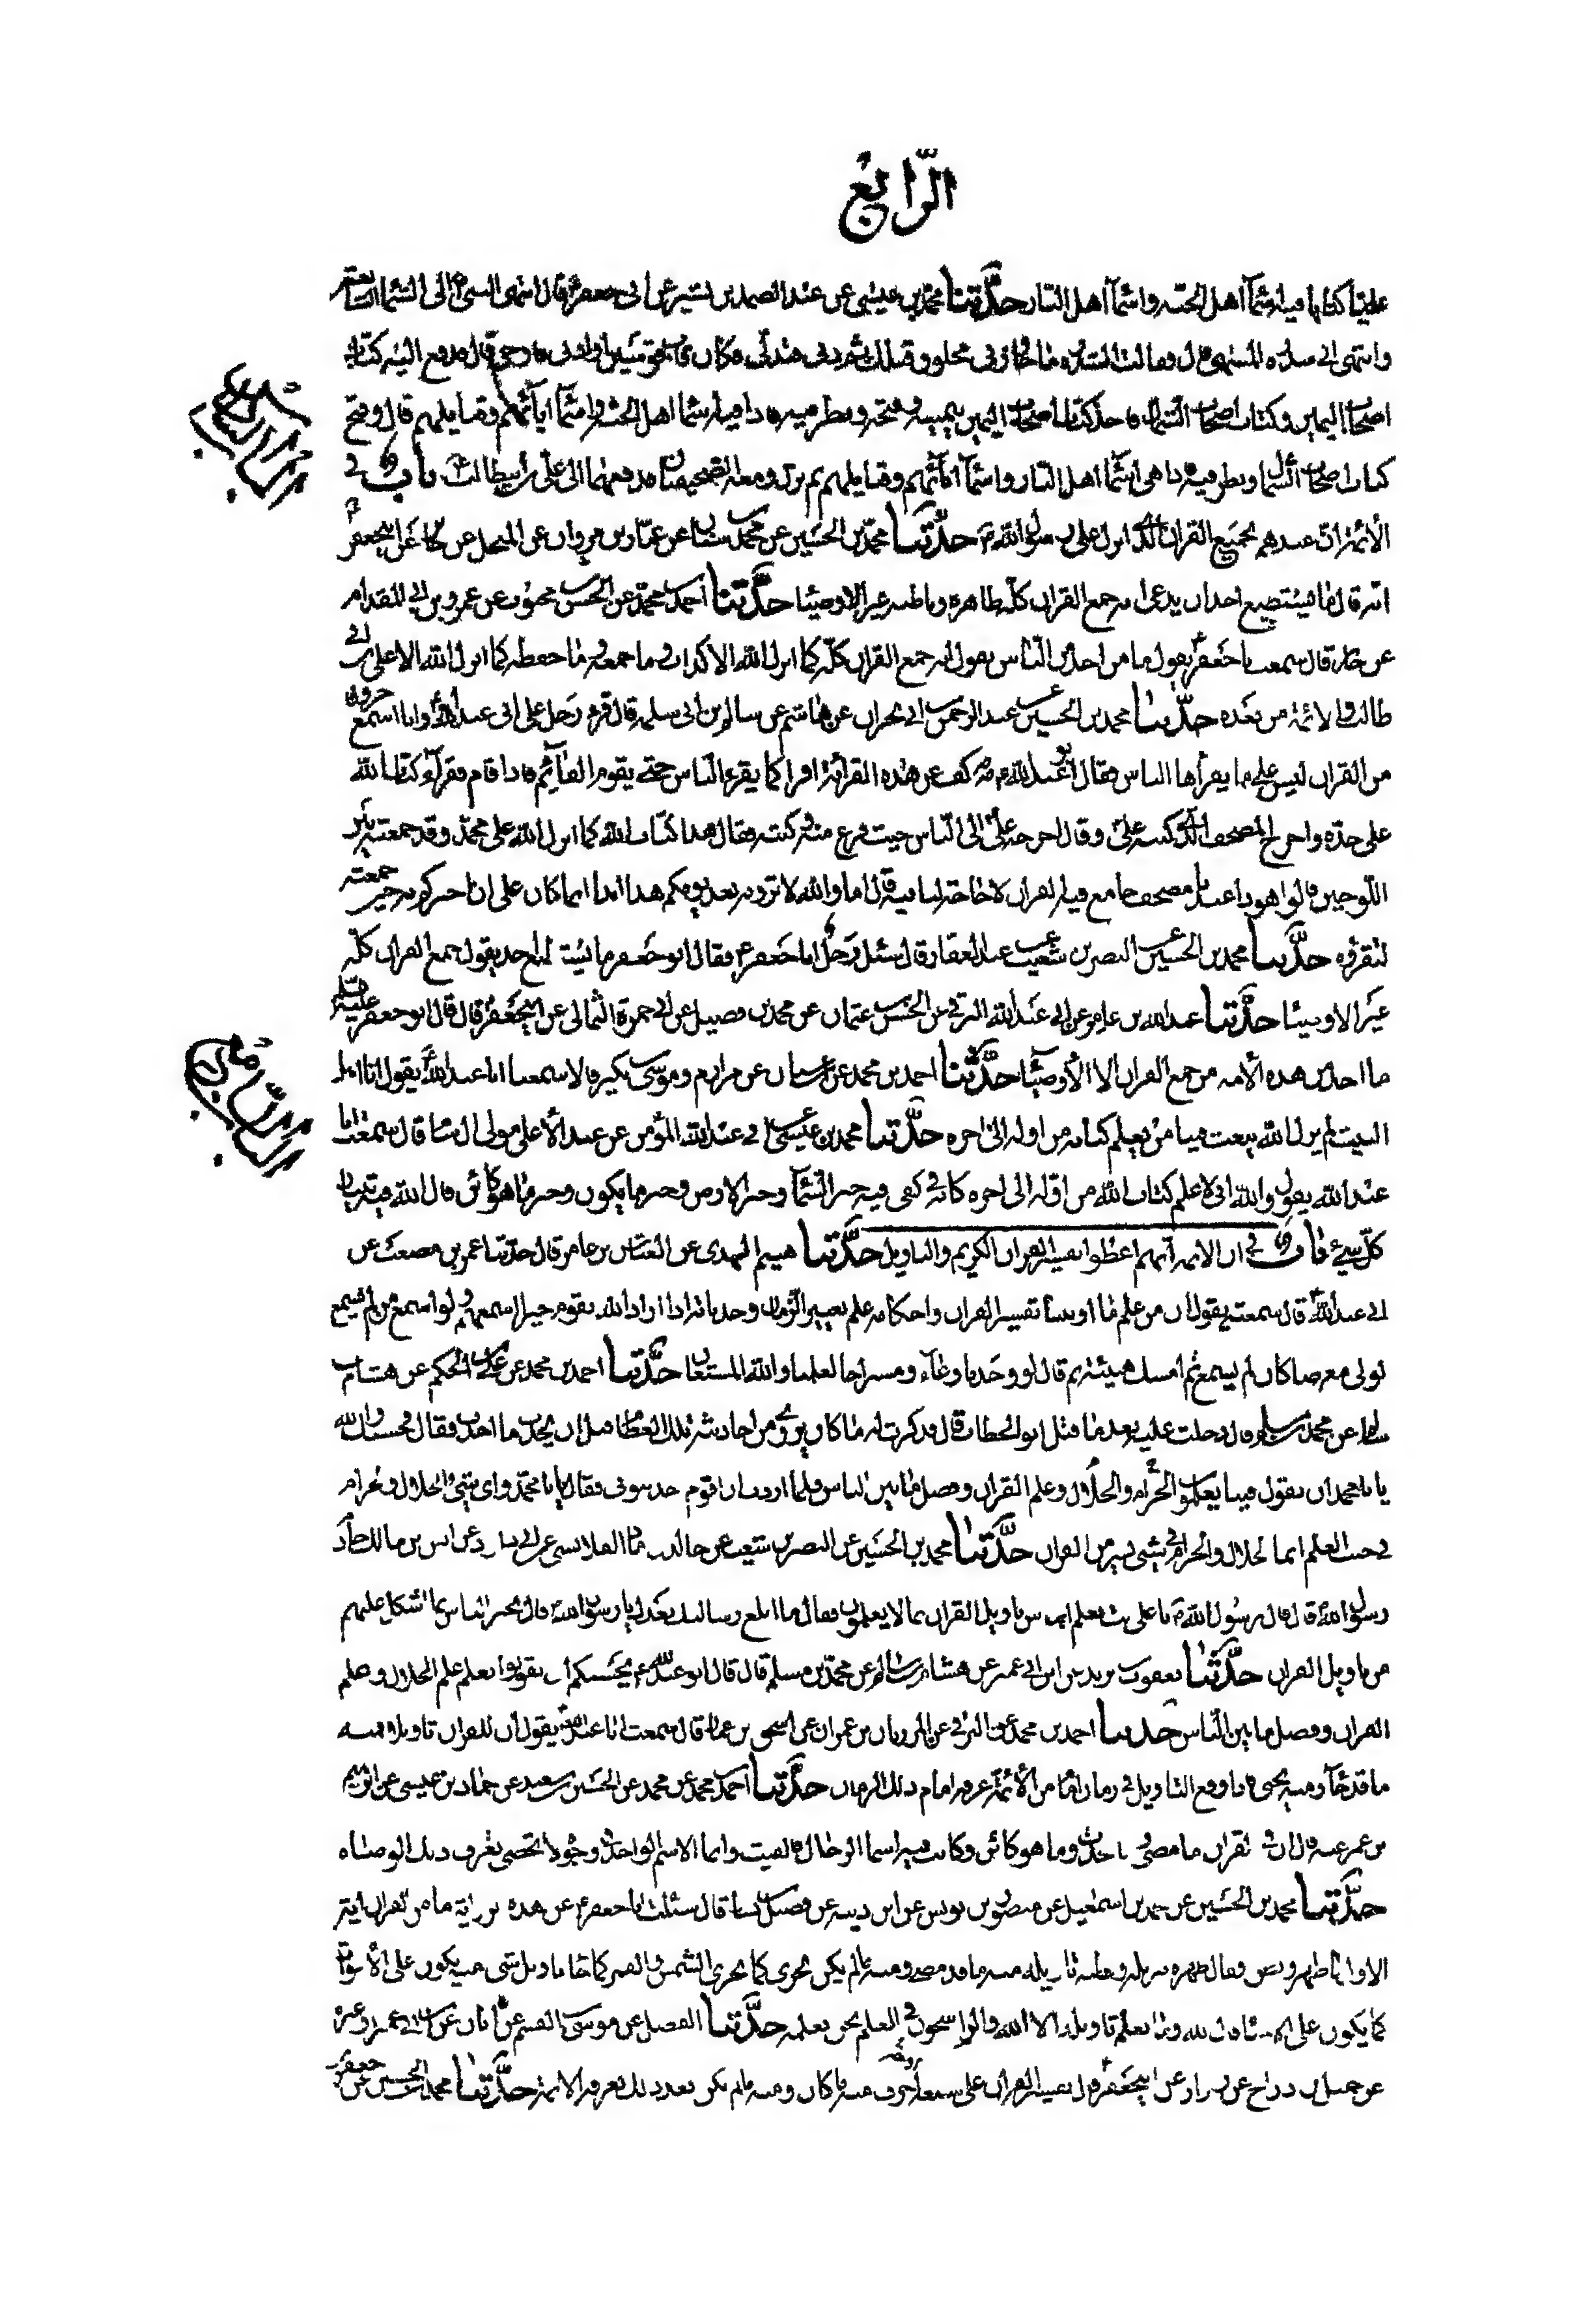 الرّابع
علينا كتابا فيه اسماء اهل الجنّة واسماء اهل النار حدّثنا محمد بن عيسى عن عبد الصمد بن بشير عن ابى جعفر ع قال انتهى النبى ص الى السماء السابعة
وانتهى الى سدرة المنتهى قال وقالت السدرة ما جاوزنى مخلوق قبلك ثم دنى فتدلّى فكان قاب قوسين او ادنى فاوحى قال فدفع اليه كتاب
اصحاب اليمين وكتاب اصحاب الشمال فاخذ كتاب اصحاب اليمين بيمينه وفتحه ونظر فيه فاذا فيه اسماء اهل الجنة واسماء ابائهم وقبايلهم قال وفتح
كتاب اصحاب الشمال ونظر فيه فاذا هى اسماء اهل النار واسماء ابائهم وقبايلهم ثم نزل ومعه الصحيفتان فدفعهما الى على بن ابيطالب باب فى
الأئمة ان عندهم بجميع القران الذى انزل على رسول الله ص حدّثنا محمد بن الحسين عن محمد بن سنان عن عمّار بن مروان عن المنخل عن جابر عن ابيجعفر ع
انه قال ما يستطيع احد ان يدعى انه جمع القران كلّه ظاهره وباطنه غير الاوصياء حدّثنا احمد بن محمد عن الحسن بن محبوب عن عمرو بن ابى المقدام
عن جابر قال سمعت ابا جعفر ع يقول ما من احد من الناس يقول انه جمع القران كله كما انزل الله الا كذاب وما جمعه وما حفظه كما انزل الله الا على بن ابى
طالب والائمة من بعده حدّثنا محمد بن الحسين عن عبد الرحمن بن ابى نجران عن هاشم عن سالم بن ابى سلمة قال قرء رجل على ابى عبد الله ع وانا اسمع حروفا
من القران ليس على ما يقرأها الناس فقال ابو عبد الله ع مه مه كف عن هذه القرائة اقرا كما يقرء الناس حتى يقوم القائم فاذا قام فقرا كتاب الله
على حدّه واخرج المصحف الذى كتبه على ع وقال اخرجه على ع الى الناس حيث فرغ منه وكتبه فقال لهم هذا كتاب الله كما انزل الله على محمد وقد جمعته بين
اللوحين قالوا هو ذا عندنا مصحف جامع فيه القران لا حاجة لنا فيه قال اما والله لا ترونه بعد يومكم هذا ابدا انما كان على ان اخبركم به حين جمعته
لتقرؤه حدّثنا محمد بن الحسين عن النضر بن شعيب عن عبد الغفار قال سئل رجل ابا جعفر ع فقال ابو جعفر ما يستطيع احد يقول جمع القران كلّه
غير الاوصياء حدّثنا عبد الله بن عامر عن ابى عبد الله البرقى عن الحسن بن عثمان عن محمد بن فضيل عن ابى حمزة الثمالى عن ابيجعفر ع قال قال ابو جعفر
ما احد من هذه الأمة من جمع القران الا الأوصياء حدّثنا احمد بن محمد عن ابن سنان عن مرازم وموسى بن بكير قالا سمعنا ابا عبد الله ع يقول انا اهل
البيت لم يزل الله يبعث فينا من يعلم كتابه من اوله الى اخره حدّثنا محمد بن عيسى عن ابى عبد الله المؤمن عن عبد الأعلى مولى ال سام قال سمعت ابا
عبد الله يقول والله انى لاعلم كتاب الله من اوّله الى اخره كانه فى كفى فيه خبر السماء وخبر الارض وخبر ما يكون وخبر ما هو كائن قال الله فيه تبيان
كلّ شىء باب فى ان الائمة انهم اعطوا تفسير القران الكريم والتاويل حدّثنا هيثم النهدى عن العباس بن عامر قال حدّثنا عمر بن مصعب عن
ابى عبد الله ع قال سمعته يقول ان من علم ما اوتينا تفسير القران واحكامه علم تغيير الزمان وحدثانه اذا اراد الله بقوم خيرا اسمعهم ولو اسمع من لم يسمع
لولى معرضا كان لم يسمع ثم امسك هنيئة ثم قال لو وجدنا وعاء ومستراحا لعلمنا والله المستعان حدّثنا احمد بن محمد عن على بن الحكم عن هشام بن
سالم عن محمد بن مسلم قال دخلت عليه بعد ما قتل ابو الخطاب قال فذكرت له ما كان يروى من احاديثه تلك العظام قبل ان يحدث ما احدث فقال فحسبك والله
يا محمد ان تقول فينا يعلمون الحرام والحلال وعلم القران وفصل ما بين الناس فلما اردت ان اقوم اخذ بثوبى فقال يا محمد واى شىء الحلال والحرام
فى جنب العلم انما الحلال والحرام فى شىء يسير من القران حدّثنا محمد بن الحسين عن النضر بن شعيب عن خالد بن ماد القلانسى عن ابى داود عن انس بن مالك خادم
رسول الله ص قال قال رسول الله ص يا على انت تعلم الناس تاويل القران بما لا يعلمون فقال ما ابلغ رسالتك بعدك يا رسول الله قال تخبر الناس بما اشكل عليهم
من تاويل القران حدّثنا يعقوب بن يزيد عن ابن ابى عمير عن هشام بن سالم عن محمد بن مسلم قال قال ابو عبد الله ع بحسبكم ان تقولوا يعلم علم الحلال وعلم
القران وفصل ما بين الناس حدّثنا احمد بن محمد عن البرقى عن المرزبان بن عمران عن اسحق بن عمار قال سمعت ابا عبد الله ع يقول ان للقران تاويلا فمنه
ما قد جاء ومنه لم يجئ فاذا وقع التاويل فى زمان امام من الأئمة عرفه امام ذلك الزمان حدّثنا احمد بن محمد عن الحسين بن سعيد عن حماد بن عيسى عن ابراهيم
بن عمر عنه قال ان فى القران ما مضى وما يحدث وما هو كائن وكانت فيه اسماء الرجال فالقيت وانما الاسم الواحد فى وجوه لا تحصى يعرف ذلك الوصاة
حدّثنا محمد بن الحسين عن محمد بن اسمعيل عن منصور بن يونس عن ابن اذينه عن فضيل بن يسار قال سئلت ابا جعفر ع عن هذه الرواية ما من القران اية
الا ولها ظهر وبطن فقال ظهره تنزيله وبطنه تاويله منه ما قد مضى ومنه ما لم يكن يجرى كما يجرى الشمس والقمر كما جاء تاويل شىء منه يكون على الأموات
كما يكون على الاحياء قال الله وما يعلم تاويله الا الله والراسخون فى العلم نحن نعلمه حدّثنا الفضل عن موسى بن القسم عن ابان عن ابن ابى عمير او غيره
عن جميل بن دراج عن زرارة عن ابيجعفر ع قال تفسير القران على سبعة احرف منه ما كان ومنه ما لم يكن بعد ذلك تعرفه الائمة حدّثنا محمد بن الحسين عن جعفر